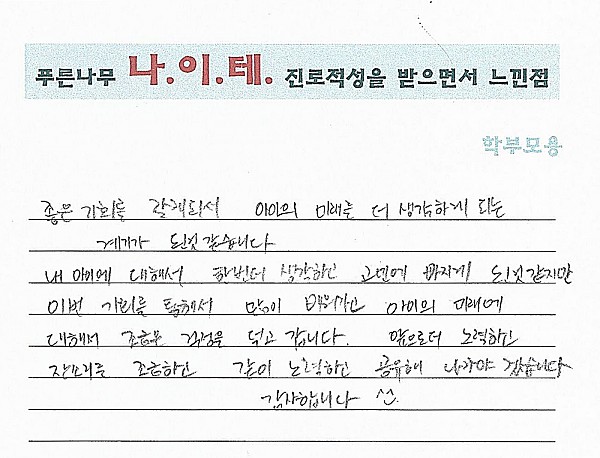 푸른나무 나.이.테. 진로적성을 받으면서 느낀점
학부모용
좋은 기회를 갖게되서 아이의 미래를 더 생각하게 되는
계기가 된것 같습니다
내 아이에 대해서 한번더 생각하고 고민에 빠지게 된것 같지만
이번 기회를 통해서 많이 배워가고 아이의 미래에
대해서 조금은 걱정을 덮고 갑니다. 앞으로더 노력하고
잔소리를 조금하고 같이 노력하고 공유해 나가야 겠습니다
감사합니다 ^^